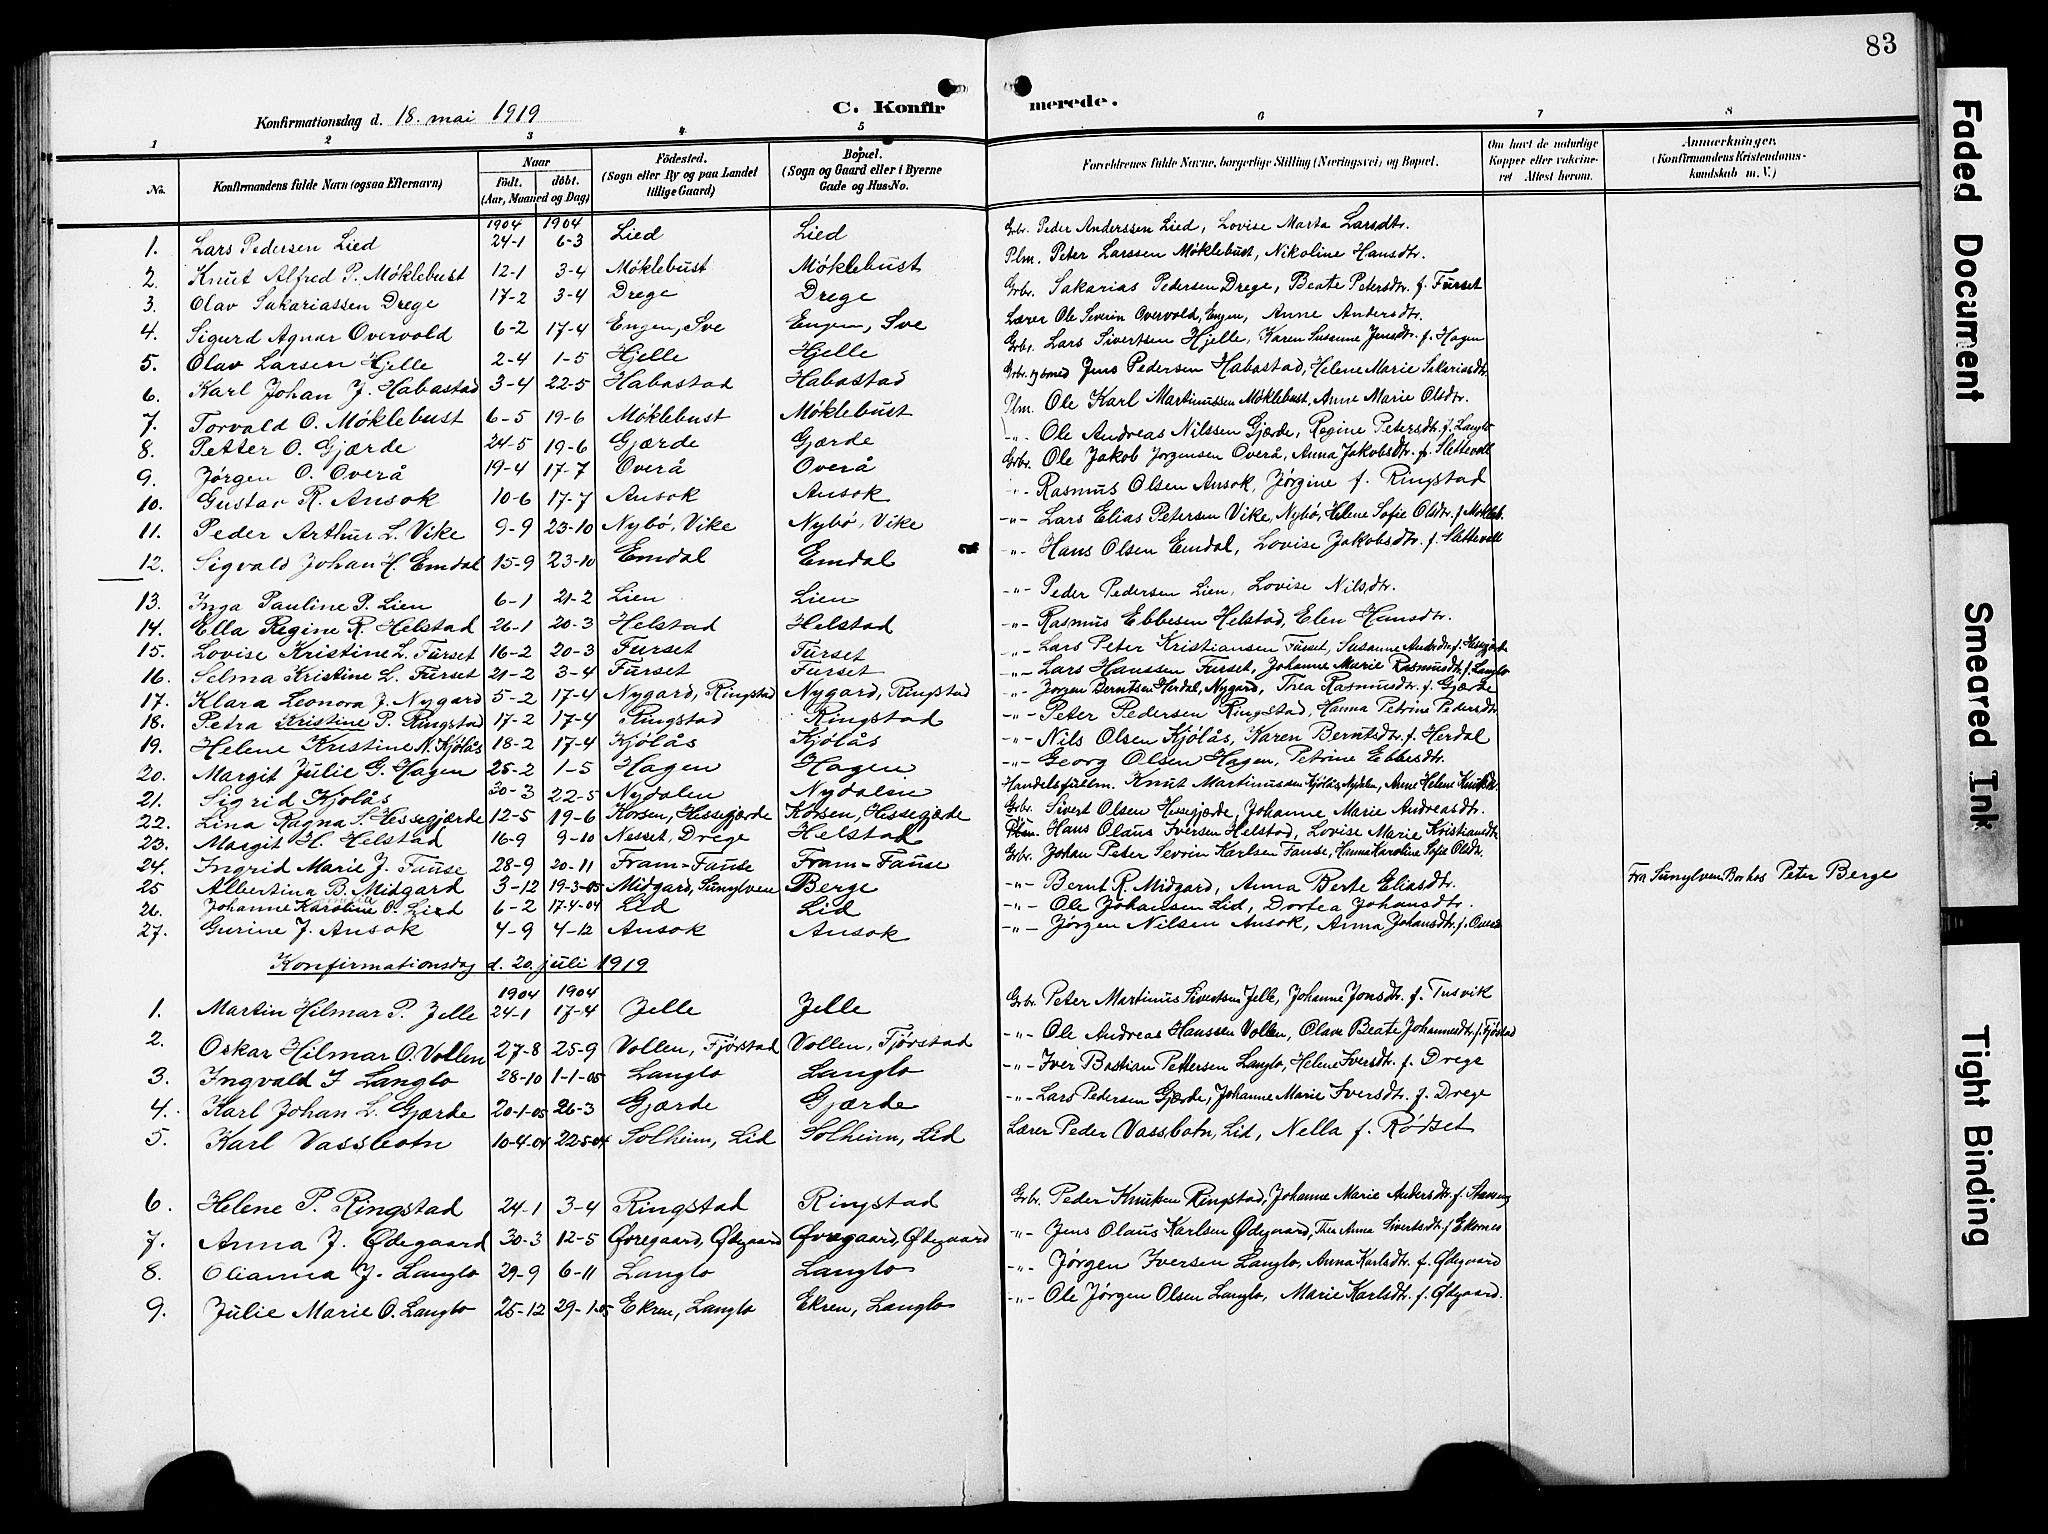 83
Faded Document
Smeared Ink
Tight Binding
Konfirmationsdag d. 18. mai 1919
C. Konfirmerede.
1 2 3 4 5 6 7 8
No. | Konfirmandens fulde Navn (ogsaa Efternavn) | Naar født. døbt. (Aar, Maaned og Dag) | Fødested. (Sogn eller By og paa Landet tillige Gaard) | Bopæl. (Sogn og Gaard eller i Byerne Gade og Hus-No. | Forældrenes fulde Navne, borgerlige Stilling (Næringsvei) og Bopæl. | Om havt de naturlige Kopper eller vaksineret Attest herom. | Anmærkninger. (Konfirmandens Kristendomskundskab m. V.)
1904 1904
1. Lars Pedersen Lied 24-1 6-3 Lied Lied Grbr. Peder Anderssen Lied, Lovise Marta Larsdtr.
2. Knut Alfred P. Møklebust 12-1 3-4 Møklebust Møklebust Plm. Peter Larssen Møklebust, Nikoline Hansdtr.
3. Olav Sakariassen Drege 17-2 3-4 Drege Drege Grbr. Sakarias Pedersen Drege, Beate Petersdtr. f. Furset
4. Sigurd Agnar Overvold 6-2 17-4 Engen, Sve Engen, Sve Lærer Ole Severin Overvold, Engen, Anne Andersdtr.
5. Olav Larsen Hjelle 2-4 1-5 Hjelle Hjelle Grbr. Lars Sivertsen Hjelle, Karen Susanne Jensdtr. f. Hagen
6. Karl Johan J. Habostad 3-4 22-5 Habostad Habostad Grbr. og smed Jens Pedersen Habostad, Helene Marie Sakariasdtr.
7. Torvald O. Møklebust 6-5 19-6 Møklebust Møklebust Plm. Ole Karl Martinussen Møklebust, Anne Marie Olsdtr.
8. Petter O. Gjærde 24-5 19-6 Gjærde Gjærde -"- Ole Andreas Nilssen Gjærde, Regine Petersdtr. f. Langlo
9. Jørgen O. Overå 19-4 17-7 Overå Overå Grbr. Ole Jakob Jørgensen Overå, Anna Jakobsdtr. f. Slettevoll
10. Gustav R. Ansok 10-6 17-7 Ansok Ansok -"- Rasmus Olsen Ansok, Jørgine f. Ringstad
11. Peder Arthur L. Vike 9-9 23-10 Nybø, Vike Nybø, Vike -"- Lars Elias Petersen Vike, Nybø, Helene Sofie Olsdtr. f. Mökleb.
12. Sigvald Johan H. Emdal 15-9 23-10 Emdal Emdal -"- Hans Olsen Emdal, Lovise Jakobsdtr. f. Slettevoll
13. Inga Pauline P. Lien 6-1 21-2 Lien Lien -"- Peder Pedersen Lien, Lovise Nilsdtr.
14. Ella Regine R. Helstad 26-1 20-3 Helstad Helstad -"- Rasmus Ebbesen Helstad, Elen Hansdtr.
15. Lovise Kristine L. Furset 16-2 20-3 Furset Furset -"- Lars Peter Kristiansen Furset, Susanne Andersdtr. f. Hessegjærde
16. Selma Kristine L. Furset 21-2 3-4 Furset Furset -"- Lars Hanssen Furset, Johanne Marie Rasmusdtr. f. Langlo
17. Klara Leonora J. Nygard 5-2 17-4 Nygard, Ringstad Nygard, Ringstad -"- Jørgen Berntsen Herdal, Nygard, Thea Rasmusdtr. f. Gjærde
18. Petra Kristine P. Ringstad 17-2 17-4 Ringstad Ringstad -"- Peter Pedersen Ringstad, Hanna Petrine Pedersdtr.
19. Helene Kristine N. Kjølås 18-2 17-4 Kjølås Kjølås -"- Nils Olsen Kjølås, Karen Berntsdtr. f. Herdal
20. Margit Julie G. Hagen 25-2 1-5 Hagen Hagen -"- Georg Olsen Hagen, Petrine Ebbesdtr.
21. Sigrid Kjølås 30-3 22-5 Nydalen Nydalen Handelsfullm. Knut Martinussen Kjølås, Nydalen, Anne Helene Knutsdtr.
22. Lina Ragna S. Hessegjærde 12-5 19-6 Korsen, Hessegjærde Korsen, Hessegjærde Grbr. Sivert Olsen Hessegjærde, Johanne Marie Andreasdtr.
23. Margit H. Helstad 16-9 9-10 Nesset, Drege Helstad Hans Olaus Iversen Helstad, Lovise Marie Kristiansdtr.
24. Ingrid Marie J. Fause 28-9 20-11 Fram-Fause Fram-Fause Grbr. Johan Peter Sevrin Karlsen Fause, Hanna Karoline Sofie Olsdtr.
25 Albertina B. Midgard 3-12 19-3-05 Midgard, Sunylven Berge -"- Bernt R. Midgard, Anna Berte Eliasdtr. Fra Sunylven. Bor hos Peter Berge
26. Johanne Karoline O. Lied 6-2 17-4-04 Lid Lid -"- Ole Johansen Lid, Dortea Johansdtr.
27. Gurine J. Ansok 4-9 4-12 Ansok Ansok -"- Jørgen Nilsen Ansok, Anna Johansdtr. f. Overå
Konfirmationsdag d. 20. juli 1919
1904 1904
1. Martin Hilmar P. Jelle 24-1 17-4 Jelle Jelle Grbr. Peter Martinus Sivertsen Jelle, Johanne Jonsdtr. f. Tusvik
2. Oskar Hilmar O. Vollen 27-8 25-9 Vollen, Fjørstad Vollen, Fjørstad -"- Ole Andreas Hanssen Vollen, Olave Beate Johannesdtr. f. Fjørstad
3. Ingvald I Langlo 28-10 1-1-05 Langlo Langlo -"- Iver Bastian Pettersen Langlo, Helene Iversdtr. f. Drege
4. Karl Johan L. Gjærde 20-1-05 26-3 Gjærde Gjærde -"- Lars Pedersen Gjærde, Johanne Marie Iversdtr. f. Drege
5. Karl Vassbotn 10-4-04 22-5-04 Solheim, Lid Solheim, Lid Lærer Peder Vassbotn, Lid, Nella f. Rødset
6. Helene P. Ringstad 24-1 3-4 Ringstad Ringstad Grbr. Peder Knutsen Ringstad, Johanne Marie Andersdtr. f.
7. Anna J. Ødegaard 30-3 12-5 Øvregaard, Ødegaard Øvregaard, Ødegaard -"- Jens Olaus Karlsen Ødegaard, Thea Anna Sivertsdtr. f. Ekornes
8. Olianna J. Langlo 29-9 6-11 Langlo Langlo -"- Jørgen Iversen Langlo, Anna Karlsdtr. f. Ødegaard
9. Julie Marie O. Langlo 25-12 29-1-05 Ekren, Langlo Ekren, Langlo -"- Ole Jørgen Olsen Langlo, Marie Karlsdtr. f. Ødegaard.